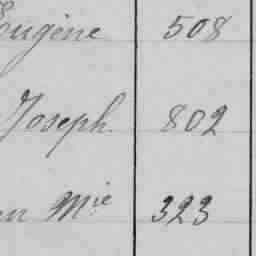 Eugène 508
Joseph 802
Mie 323